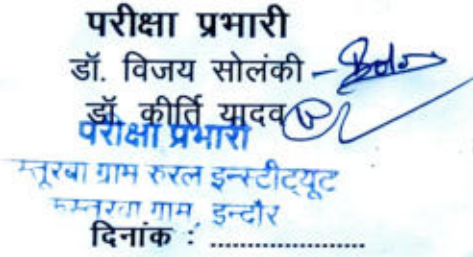 परीक्षा प्रभारी
डॉ. विजय सोलंकी –
डॉ. कीर्ति यादव
परीक्षा प्रभारी
स्तूरबा ग्राम रुरल इन्स्टीट्यूट
कस्तूरबा ग्राम, इन्दौर
दिनांक : .....................